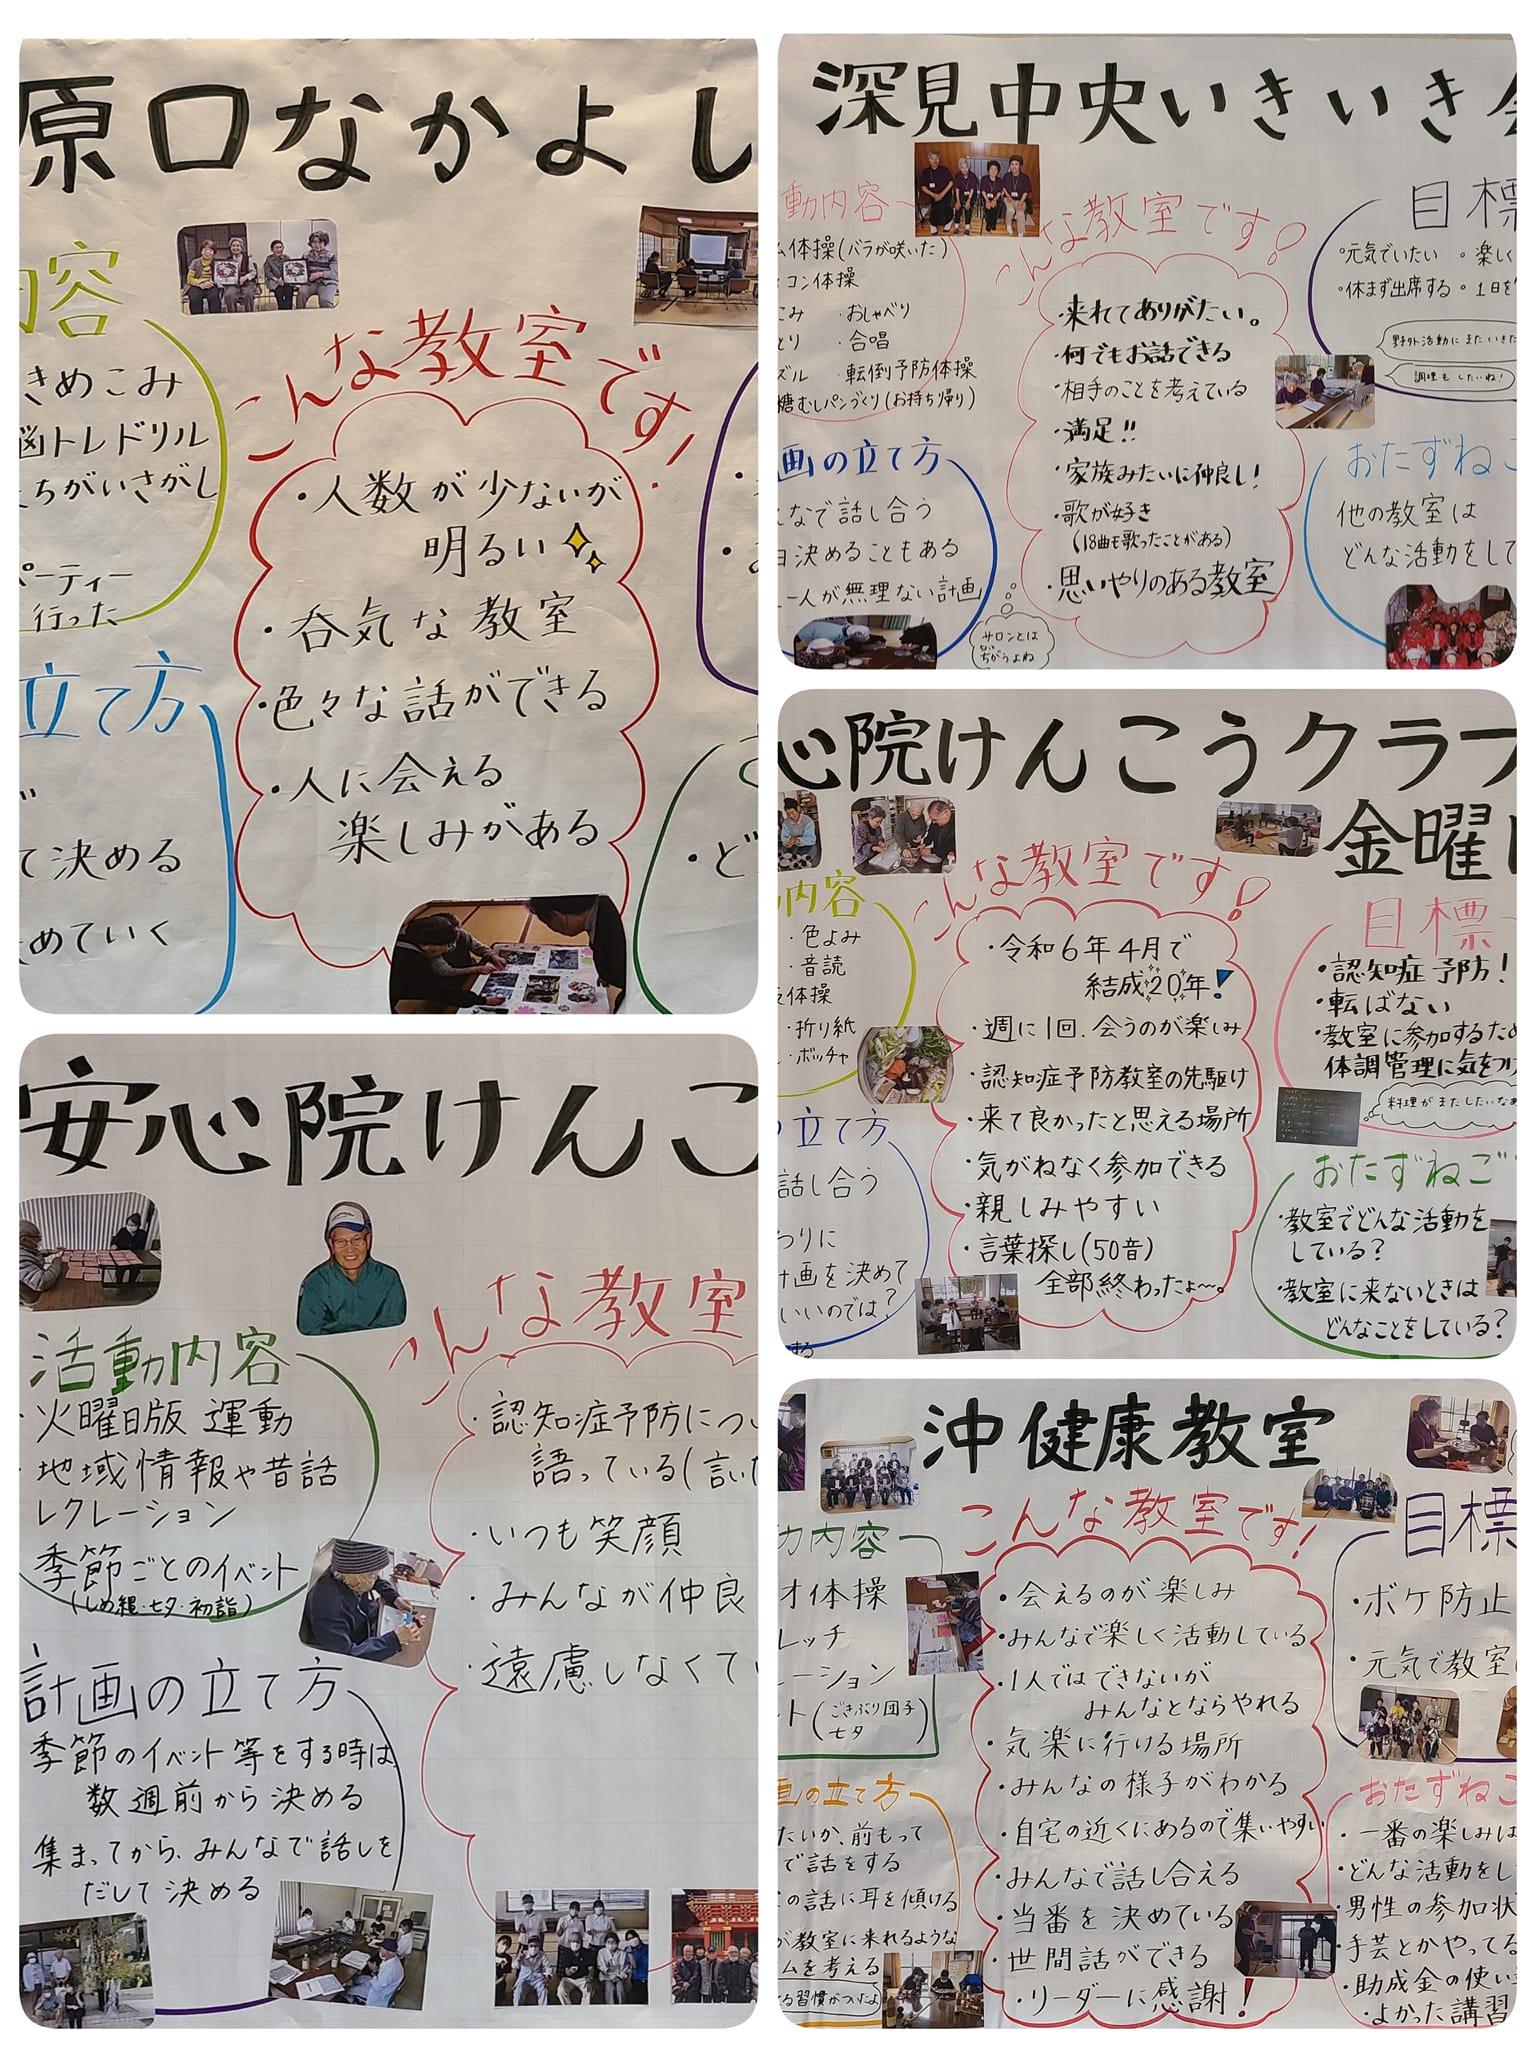 原口なかよし
容
きめこみ
脳トレドリル
まちがいさがし
パーティー
行った
立て方
て決める
めていく
こんな教室です!
・人数が少ないが
明るい
・呑気な教室
・色々な話ができる
・人に会える
楽しみがある
・ど
深見中央いきいき会
動内容
体操(バラが咲いた)
コン体操
こみ ・おしゃべり
とり ・合唱
ズル ・転倒予防体操
糖むしパンづくり(お持ち帰り)
画の立て方
んなで話し合う
日決めることもある
一人が無理ない計画
サロンとは
ちがうよね
こんな教室です!
・来れてありがたい。
・何でもお話できる
・相手のことを考えている
・満足!!
・家族みたいに仲良し!
・歌が好き
(18曲も歌ったことがある)
・思いやりのある教室
目標
・元気でいたい ・楽しく
・休まず出席する ・1日を
野外活動にまたいきた
調理もしたいね!
おたずねご
他の教室は
どんな活動をして
心院けんこうクラブ
金曜日
内容
・色よみ
・音読
体操
・折り紙
・ボッチャ
立て方
話し合う
わりに
計画を決めて
いいのでは?
する
こんな教室です!
・令和6年4月で
結成20年!
・週に1回、会うのが楽しみ
・認知症予防教室の先駆け
・来て良かったと思える場所
・気がねなく参加できる
・親しみやすい
・言葉探し(50音)
全部終わったよ〜。
目標
・認知症予防!
・転ばない
・教室に参加するため
体調管理に気をつけ
料理がまたしたいなぁ
おたずねご
・教室でどんな活動を
している?
・教室に来ないときは
どんなことをしている?
安心院けんこ
活動内容
・火曜日版 運動
・地域情報や昔話
レクレーション
季節ごとのイベント
(しめ縄・七夕・初詣)
計画の立て方
季節のイベント等をする時は
数週前から決める
集まってから、みんなで話しを
だして決める
こんな教室
・認知症予防につい
語っている(言いた
・いつも笑顔
・みんなが仲良
・遠慮しなくてい
沖健康教室
動内容
オ体操
レッチ
ーション
ント(ごきぶり団子
七夕)
画の立て方
たいか、前もって
で話をする
の話に耳を傾ける
が教室に来れるような
ムを考える
る習慣がついたよ
こんな教室です!
・会えるのが楽しみ
・みんなで楽しく活動している
・1人ではできないが
みんなとならやれる
・気楽に行ける場所
・みんなの様子がわかる
・自宅の近くにあるので集いやすい
・みんなで話し合える
・当番を決めている
・世間話ができる
・リーダーに感謝!
目標
・ボケ防止
・元気で教室
おたずねご
・一番の楽しみは
・どんな活動をし
・男性の参加状
・手芸とかやってる
・助成金の使い
・よかった講習